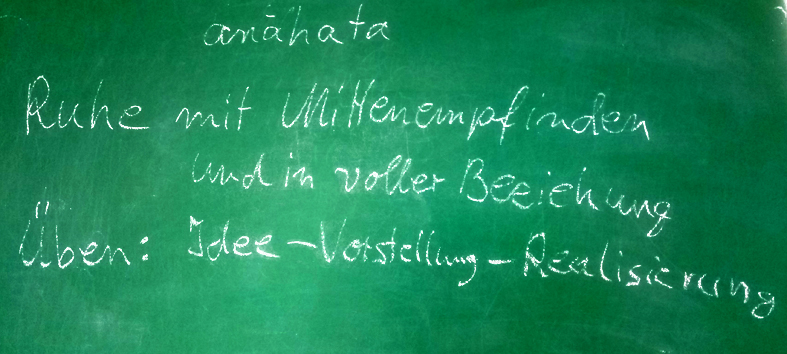 anāhata
Ruhe mit Mittenempfinden
und in voller Beziehung
Üben: Idee – Vorstellung – Realisierung